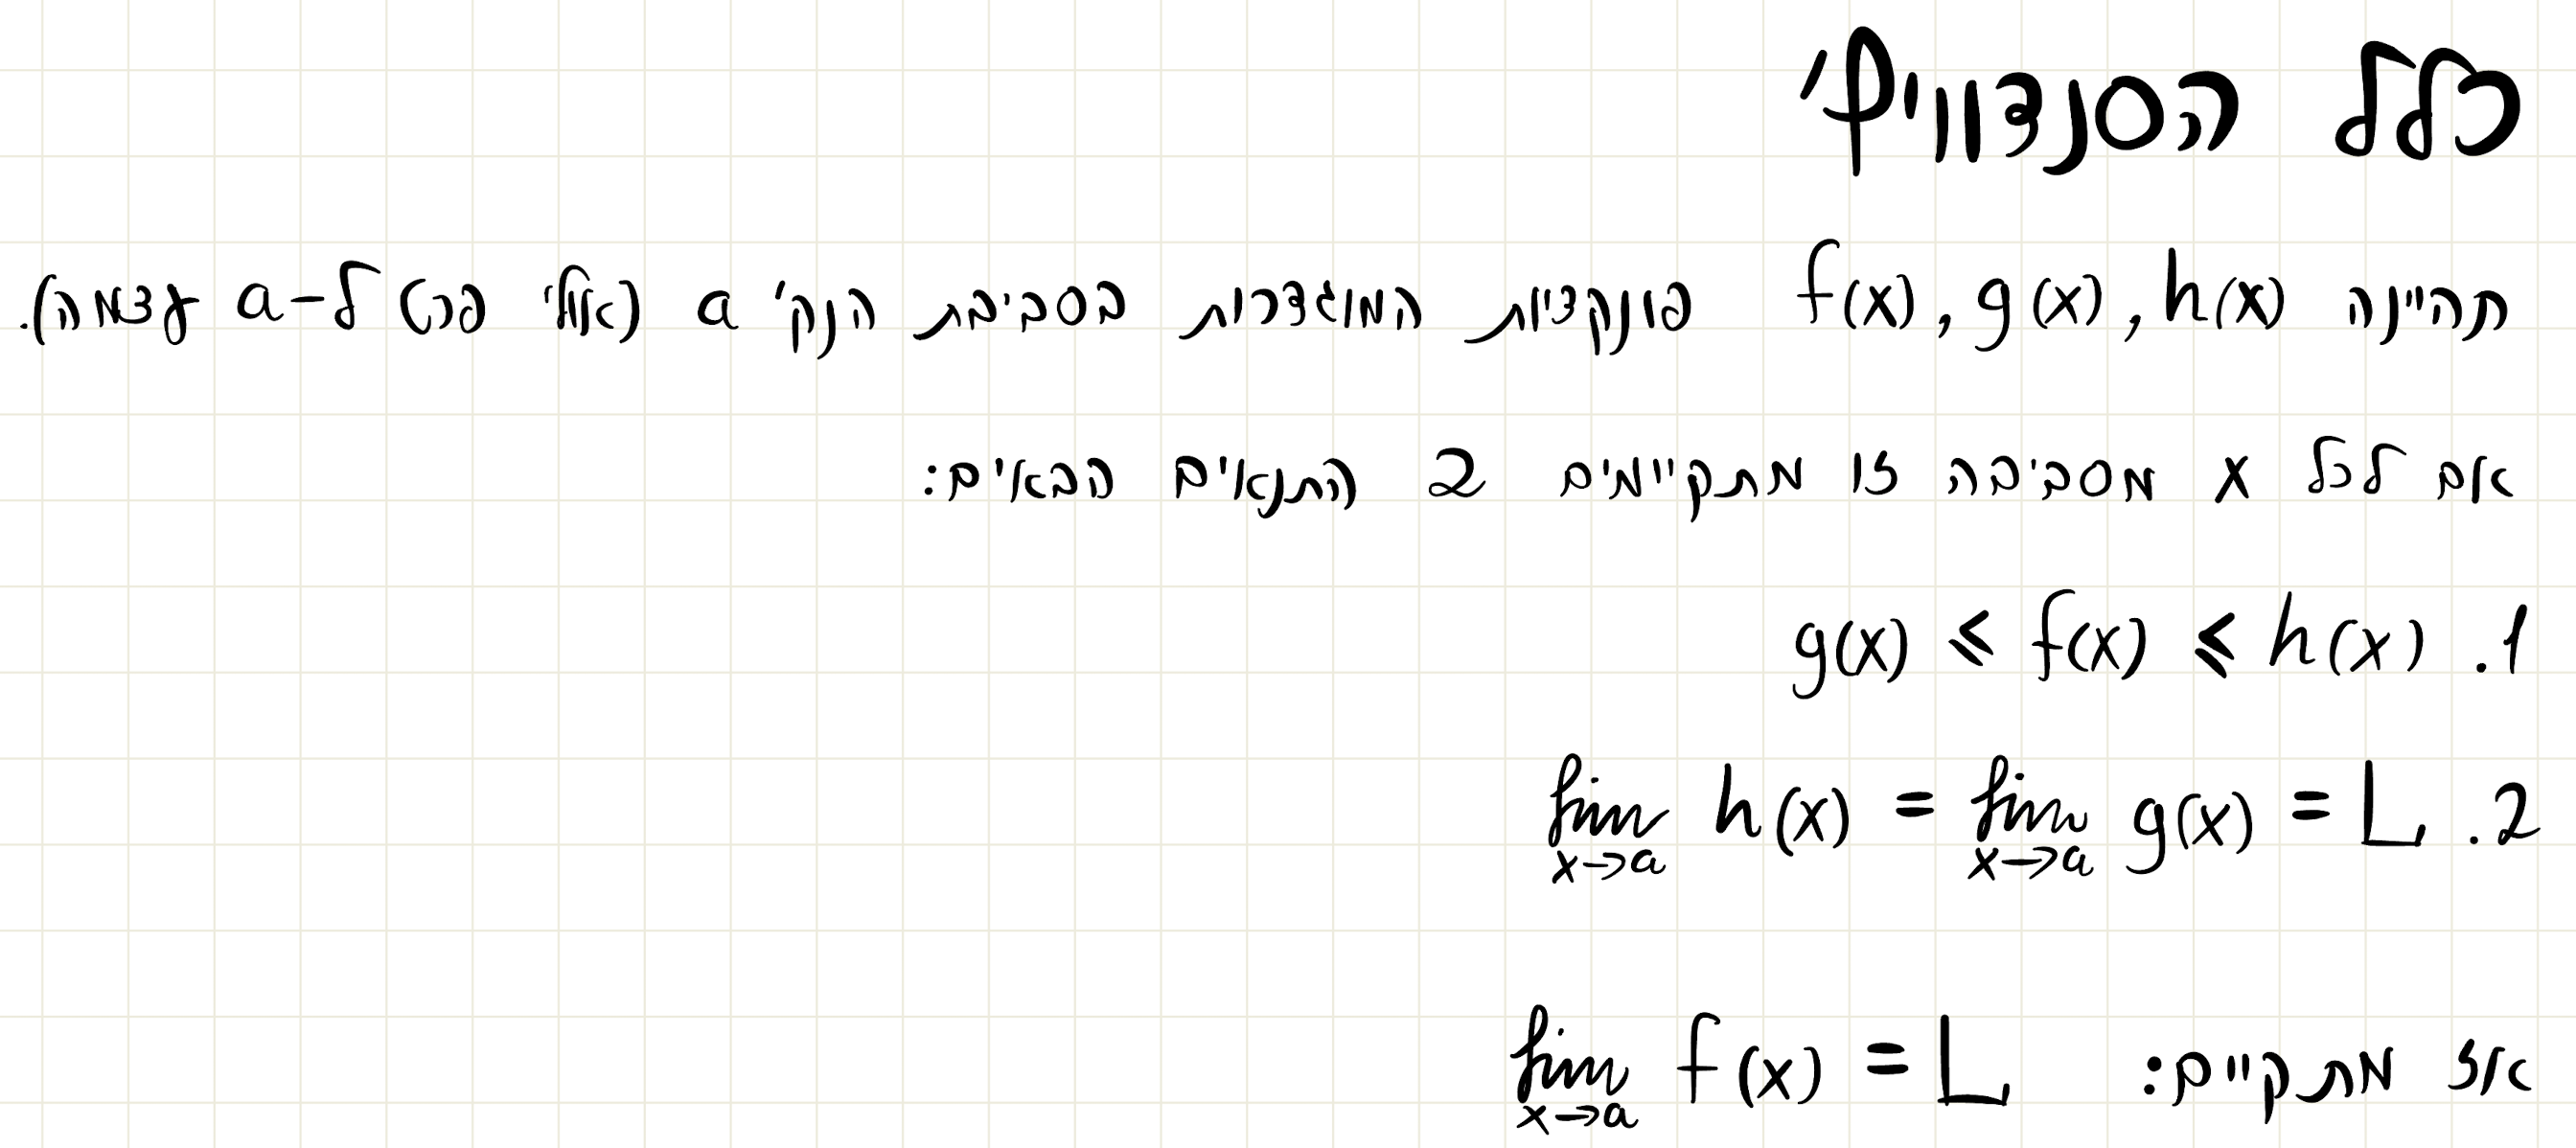 כלל הסנדוויץ'
תהיינה f(x), g(x), h(x) פונקציות המוגדרות בסביבת הנק' a (אולי פרט ל-a עצמה).
אם לכל x מסביבה זו מתקיימים 2 התנאים הבאים:
1. g(x) ⩽ f(x) ⩽ h(x)
2. lim x→a h(x) = lim x→a g(x) = L
אז מתקיים: lim x→a f(x) = L